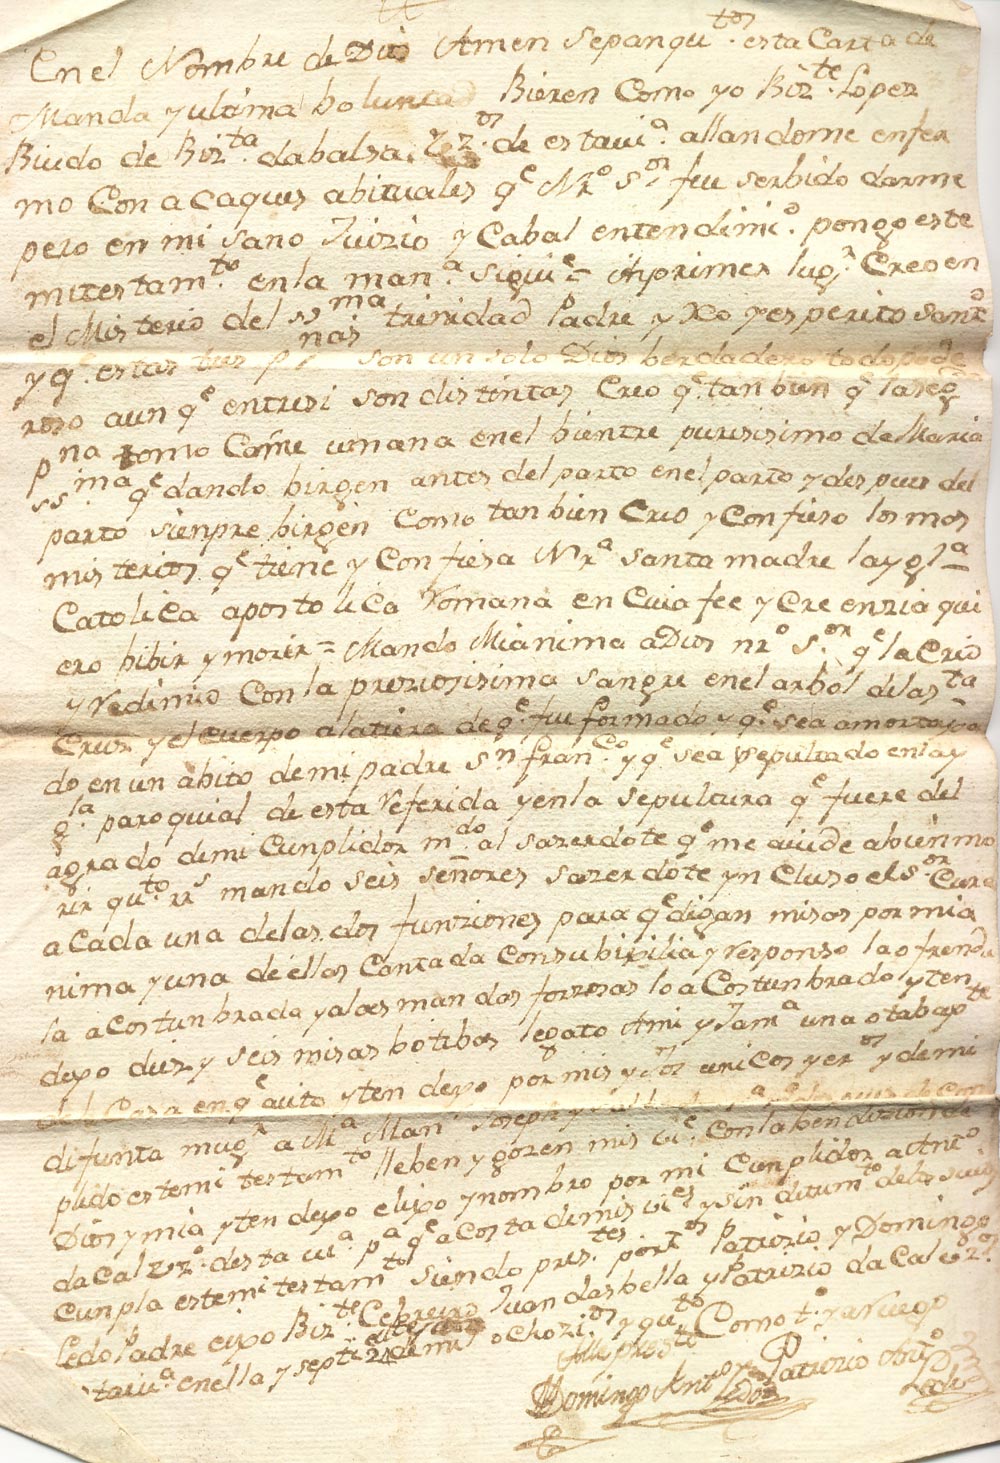 En el Nombre de Dios Amen Sepan qu.tos esta Carta de
Manda y ultima boluntad Bieren Como yo Biz.te Lopez
Biudo de Biz.ta dabalsa, vz.os de esta vi.a allandome enfer
mo Con acaques abituales q.e Nr.o S.or fue serbido darme
pero en mi sano Juizio y Cabal entendimi.o pongo este
mi testam.to en la man.a sigui.e = in primer lug.r Creo en
el Misterio del ss.ma trinidad Padre y Xo y esperito sant.o
y q.e estas tres p.nas son un solo Dios berdadero todo pode
roso aun q.e entresi son distintas Creo q.e tan bien q.e la seg.
p.na tomo Carne umana en el bientre purisisimo de Maria
ss.ma q.e dando birgen antes del parto en el parto y des pues del
parto sienpre birgen Como tan bien Creo y Confieso los mos
misterios q.e tiene y Confiesa Nr.a santa madre la ygl.a
Catolica apostolica Romana en Cuia fee y Creenzia qui
ero bibir y morir = Mando Mi anima a Dios nr.o S.or q.e la Crio
y redimio Con la preziosisima sangre en el arbol de la s.ta
Cruz y el cuerpo a la tiera de q.e fue formado y q.e sea amortaja
do en un abito de mi padre S.n fran.co y q.e sea sepultado en la y
g.la paroquial de esta referida y en la sepultura q.e fuere del
agrado de mi Cunplidor m.do al sazerdote q.e me aiude a bien mo
rir qu.to rr.s mando seis señores sazerdote yn Cluso el S.or Cura
a cada una de las dos funziones para q.e digan misas por mi a
nima y una de ellas Cantada Con su bixilia y responso la ofrenda
la acostunbrada y a las mandas forzosas lo a Costunbrado yten
depo diez y seis misas botibas legato Ami y Jam.a una otaba p.te
del Casa en q.e auito yten depo por mis yJos unicos y er.os y de mi
difunta mug.r a M.a Man.a Joseph y
plido este mi testam.to lleben y gozen mis vi.es Con la bendizion de
Dios y mia yten depo elixo y nombro por mi Cunplidor a Ant.o
da Cal vz.o desta vi.a p.a q.e a Costa de mis vi.es y sin ditum.to de los suios
Cunpla este mi testam.to siendo pres.tes por t.os Patrizio y Domingo
Ledo Padre e ixo Biz.te Cebreiro Juan dasbella y Patrizio da Cal vz.os
esta vi.a en ella y sept.e 24 de mil ochozi.os y qu.to Como t.o y a ruego
Domingo Ant.o Ledo Patrizio Ant.o
Ledo